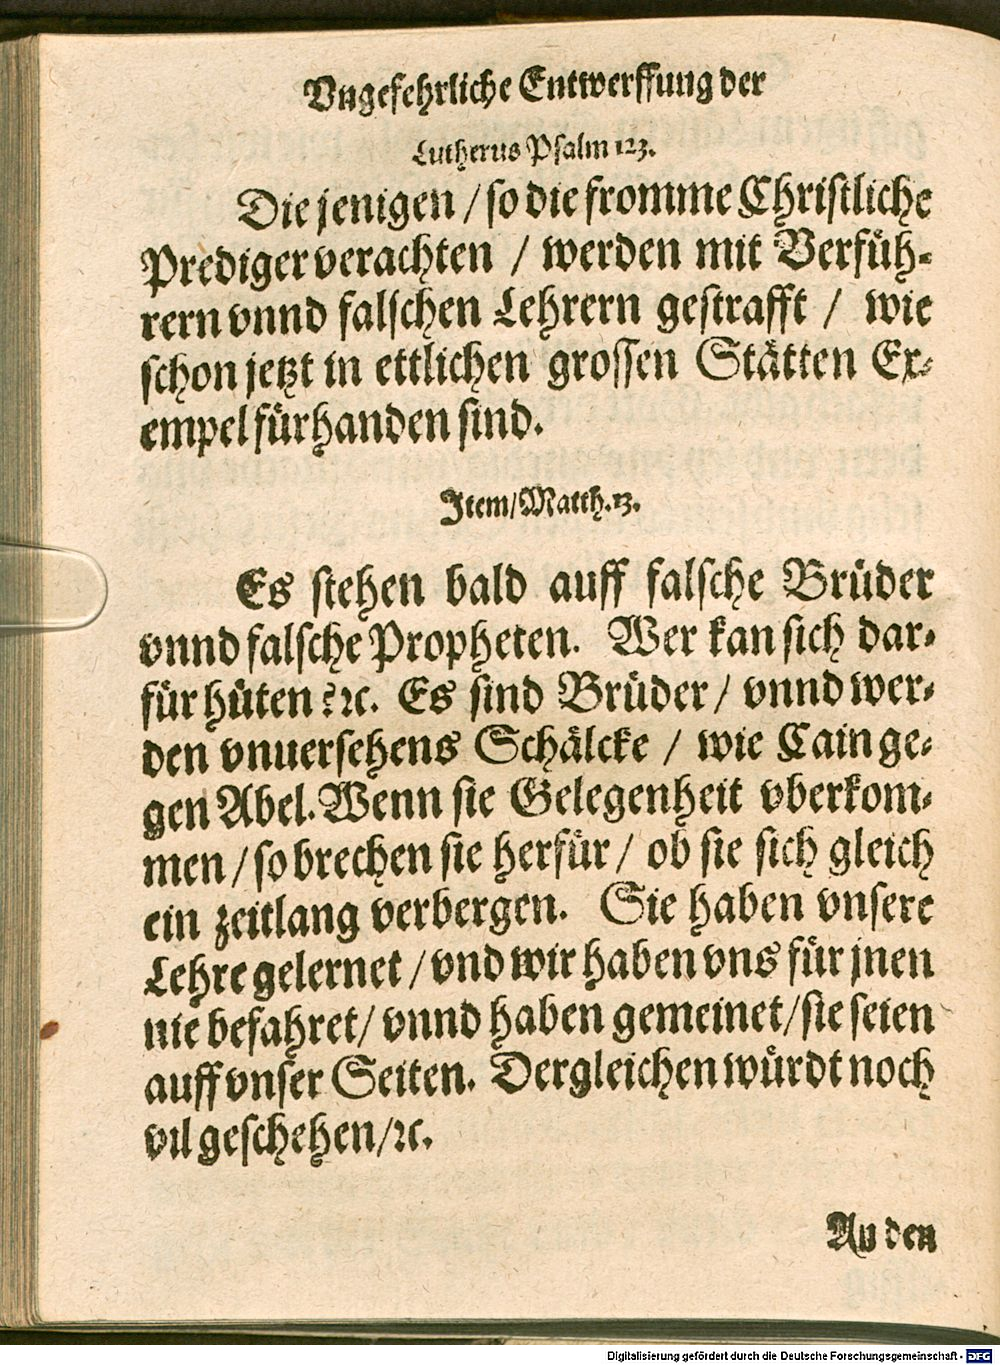 Vngefehrliche Entwerffung der
Lutherus Psalm 123.
Die jenigen / so die fromme Christliche
Prediger verachten / werden mit Verfüh-
rern vnnd falschen Lehrern gestrafft / wie
schon jetzt in ettlichen grossen Stätten Ex-
empel fürhanden sind.
Item/Matth.13.
Es stehen bald auff falsche Brüder
vnnd falsche Propheten. Wer kan sich dar-
für hüten ?ꝛc. Es sind Brüder / vnnd wer-
den vnuersehens Schälcke / wie Cain ge-
gen Abel. Wenn sie Gelegenheit vberkom-
men / so brechen sie herfür / ob sie sich gleich
ein zeitlang verbergen. Sie haben vnsere
Lehre gelernet / vnd wir haben vns für jnen
nie befahret / vnnd haben gemeinet / sie seien
auff vnser Seiten. Dergleichen würdt noch
vil geschehen/ꝛc.
An den
Digitalisierung gefördert durch die Deutsche Forschungsgemeinschaft - DFG